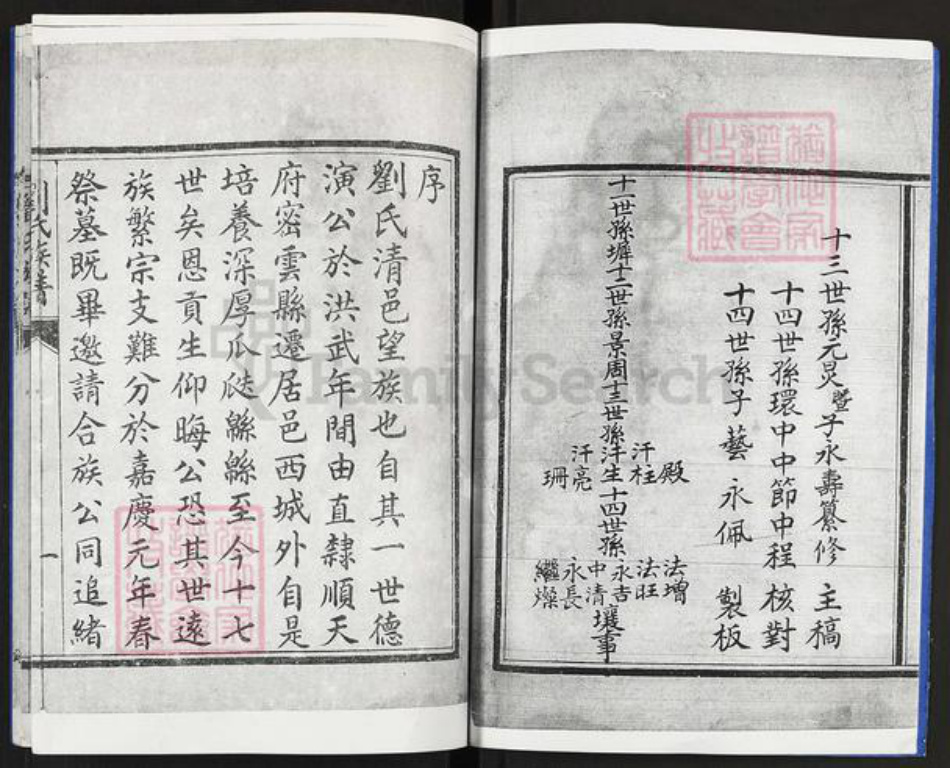 十三世孫元炅暨子永壽纂修 主稿
十四世孫環中中節中程 核對
十四世孫子藝 永佩 製板
十一世孫墀十二世孫景周十三世孫 殿 汗柱 汗生 汗亮 珊 十四世孫 法增 法旺 永吉 中清 永長 繼燥 襄事
序
劉氏清邑望族也自其一世德
演公於洪武年間由直隸順天
府密雲縣遷居邑西城外自是
培養深厚瓜瓞緜緜至今十七
世矣恩貢生仰晦公恐其世遠
族繁宗支難分於嘉慶元年春
祭墓既畢邀請合族公同追緒
劉氏族譜
一
FamilySearch